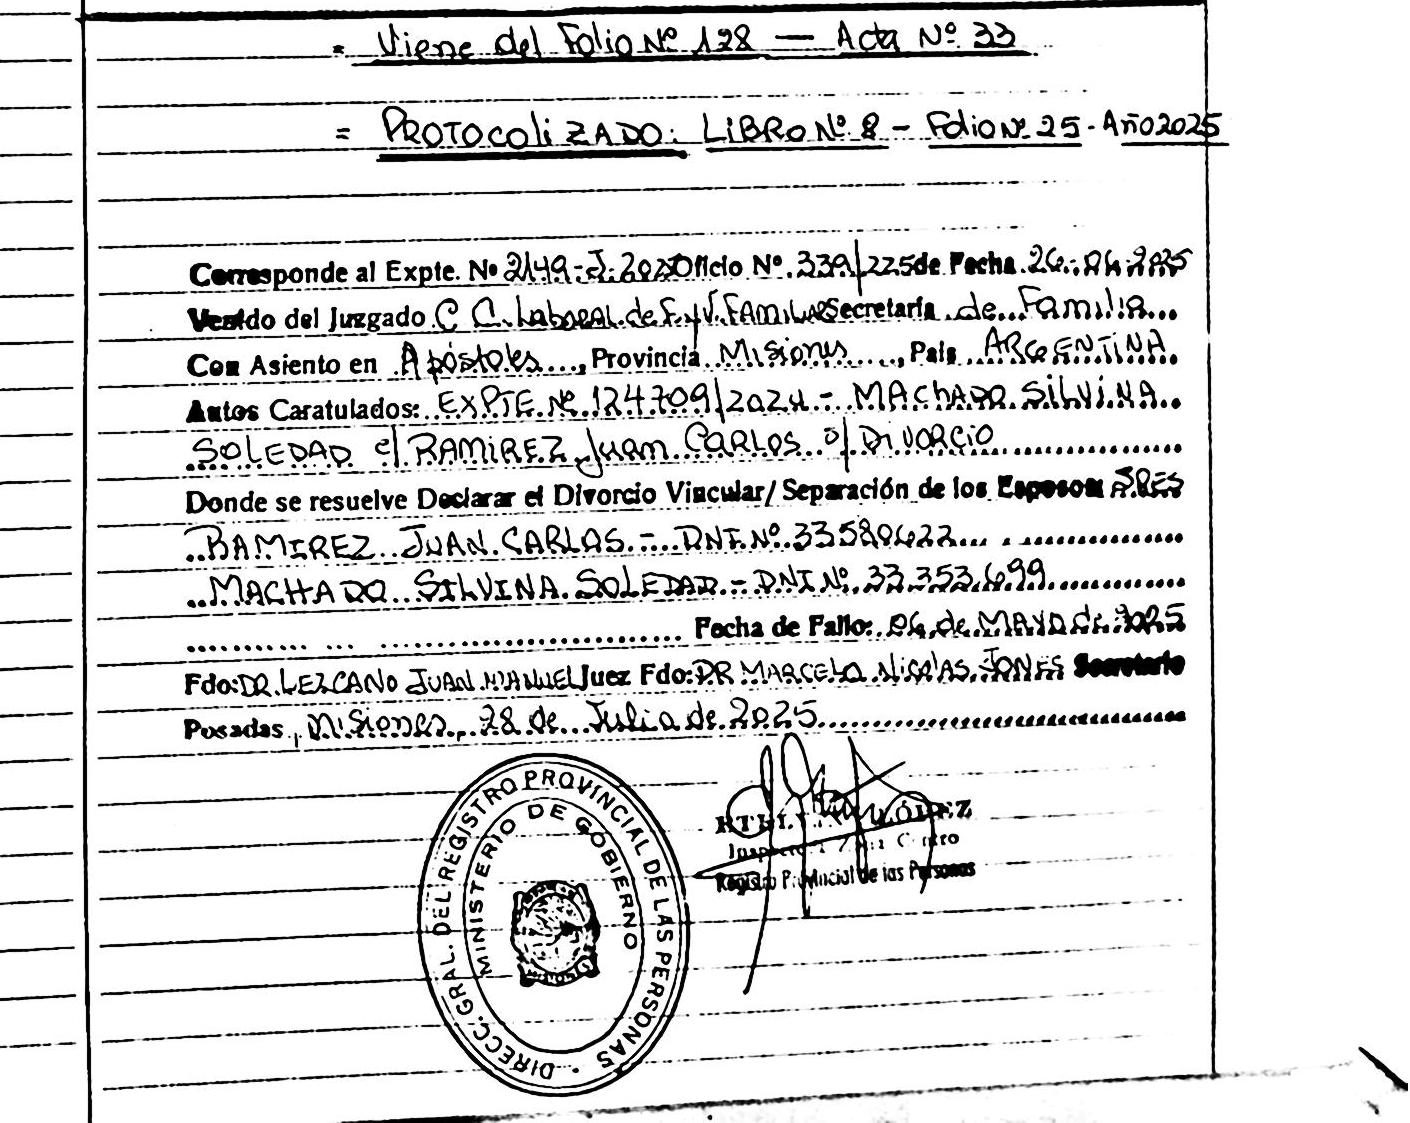 = Viene del Folio Nº 128 — Acta Nº 33
= PROTOCOLIZADO: LIBRO Nº 8 - Folio Nº 25 - Año 2025
Corresponde al Expte. Nº 2149-J-2025 Oficio Nº 339/225 de Fecha 26-06-2025
Venido del Juzgado C C. Laboral de F. y V. FAMILIAR Secretaría de Familia
Con Asiento en Apóstoles, Provincia Misiones, País ARGENTINA
Autos Caratulados: EXPTE Nº 124709/2024 - MACHADO SILVINA
SOLEDAD c/ RAMIREZ Juan CARLOS s/ DIVORCIO
Donde se resuelve Declarar el Divorcio Vincular/ Separación de los Esposos: SRES
RAMIREZ JUAN CARLOS - DNI Nº 33580622
MACHADO SILVINA SOLEDAD - DNI Nº 33.353.699
Fecha de Fallo: 06 de MAYO de 2025
Fdo: DR. LEZCANO JUAN MANUEL Juez Fdo: DR MARCELO NICOLAS JONES Secretario
Posadas, Misiones, 28 de Julio de 2025
DIRECC. GRAL. DEL REGISTRO PROVINCIAL DE LAS PERSONAS
MINISTERIO DE GOBIERNO
LÓPEZ
Centro
Registro Provincial de las Personas